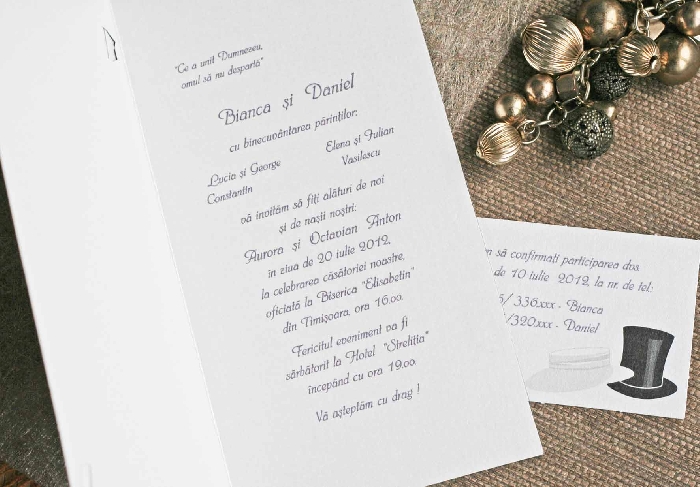 "Ce a unit Dumnezeu,
omul să nu despartă"
Bianca și Daniel
cu binecuvântarea părinților:
Lucia și George
Constantin
Elena și Iulian
Vasilescu
vă invităm să fiți alături de noi
și de nașii noștri:
Aurora și Octavian Anton
în ziua de 20 iulie 2012,
la celebrarea căsătoriei noastre,
oficiată la Biserica "Elisabetin"
din Timișoara, ora 16.00.
Fericitul eveniment va fi
sărbătorit la Hotel "Strelitia"
începând cu ora 19.00.
Vă așteptăm cu drag !
să confirmati participarea dvs.
de 10 iulie 2012, la nr. de tel:
/ 336xxx - Bianca
/320xxx - Daniel